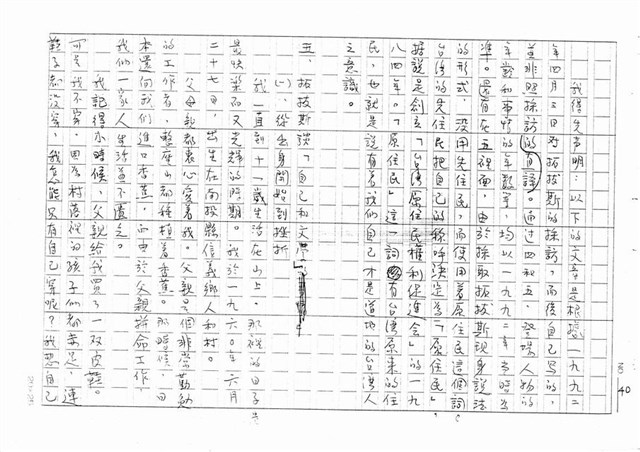 我得先声明：以下的文章是根據一九九二
年四月三日对拓拔斯的採訪，而後自己写的，
並非照採訪的自譯。而过四和五，登場人物的
年数和事情的年数等，均以一九九二年当時為
準。還有在五裡面，由於採取拓拔斯現身說法
的形式，没用先住民，而使用着原住民這個詞
台湾的先住民把自己的称呼決定為「原住民」，
據說是創立「台湾原住民權利促進会」的一九
八四年。「原住民」這一詞有台湾原來的住
民，也就是說有着我們自己才是道地的台湾人
之意識。
五、拓拔斯談「自己和文学」
(一)、從出身開始到挫折
我一直到十一歲生活在山上，那裡的日子
最快樂而又光輝的時期。我於一九六〇年六月
二十七日，出生在南投縣信義鄉人和村。
父母親都衷心愛着我。父親是個非常勤勉
的工作者，整座山都種植着香蕉。那時候，日
本還向我們進口香蕉，而由於父親拚命工作，
我們一家人生活並不匱乏。
我記得小時候，父親給我買了一双皮鞋。
可是我不穿。因為村落裡的孩子們都赤足，連
鞋子都没穿，我怎能只有自己穿呢？我想自己
40